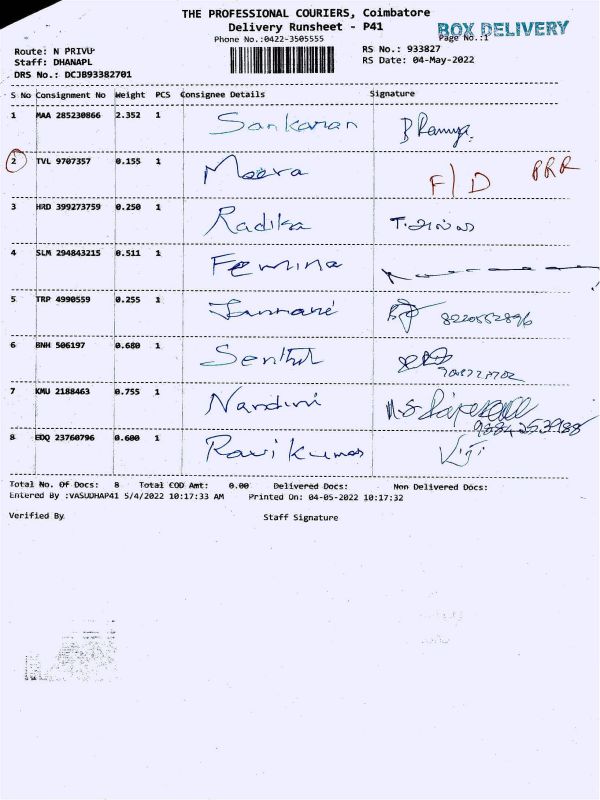 THE PROFESSIONAL COURIERS, Coimbatore
Delivery Runsheet - P41
BOX DELIVERY
Phone No.:0422-3505555
Page No.:1
Route: N PRIVU
RS No.: 933827
Staff: DHANAPL
RS Date: 04-May-2022
DRS No.: DCJB93382701
S No Consignment No Weight PCS Consignee Details Signature
1 MAA 285230866 2.352 1 Sankaran B Ramya
2 TVL 9707357 0.155 1 Meera F/D PRR
3 HRD 399273759 0.250 1 Radika
4 SLM 294843215 0.511 1 Femina
5 TRP 4990559 0.255 1
6 BNH 506197 0.680 1 Senthil
7 KMU 2188463 0.755 1 Nandini
8 EDQ 23760796 0.600 1 Ravi Kumar Viji
Total No. Of Docs: 8 Total COD Amt: 0.00 Delivered Docs: Non Delivered Docs:
Entered By :VASUDHAP41 5/4/2022 10:17:33 AM Printed On: 04-05-2022 10:17:32
Verified By Staff Signature